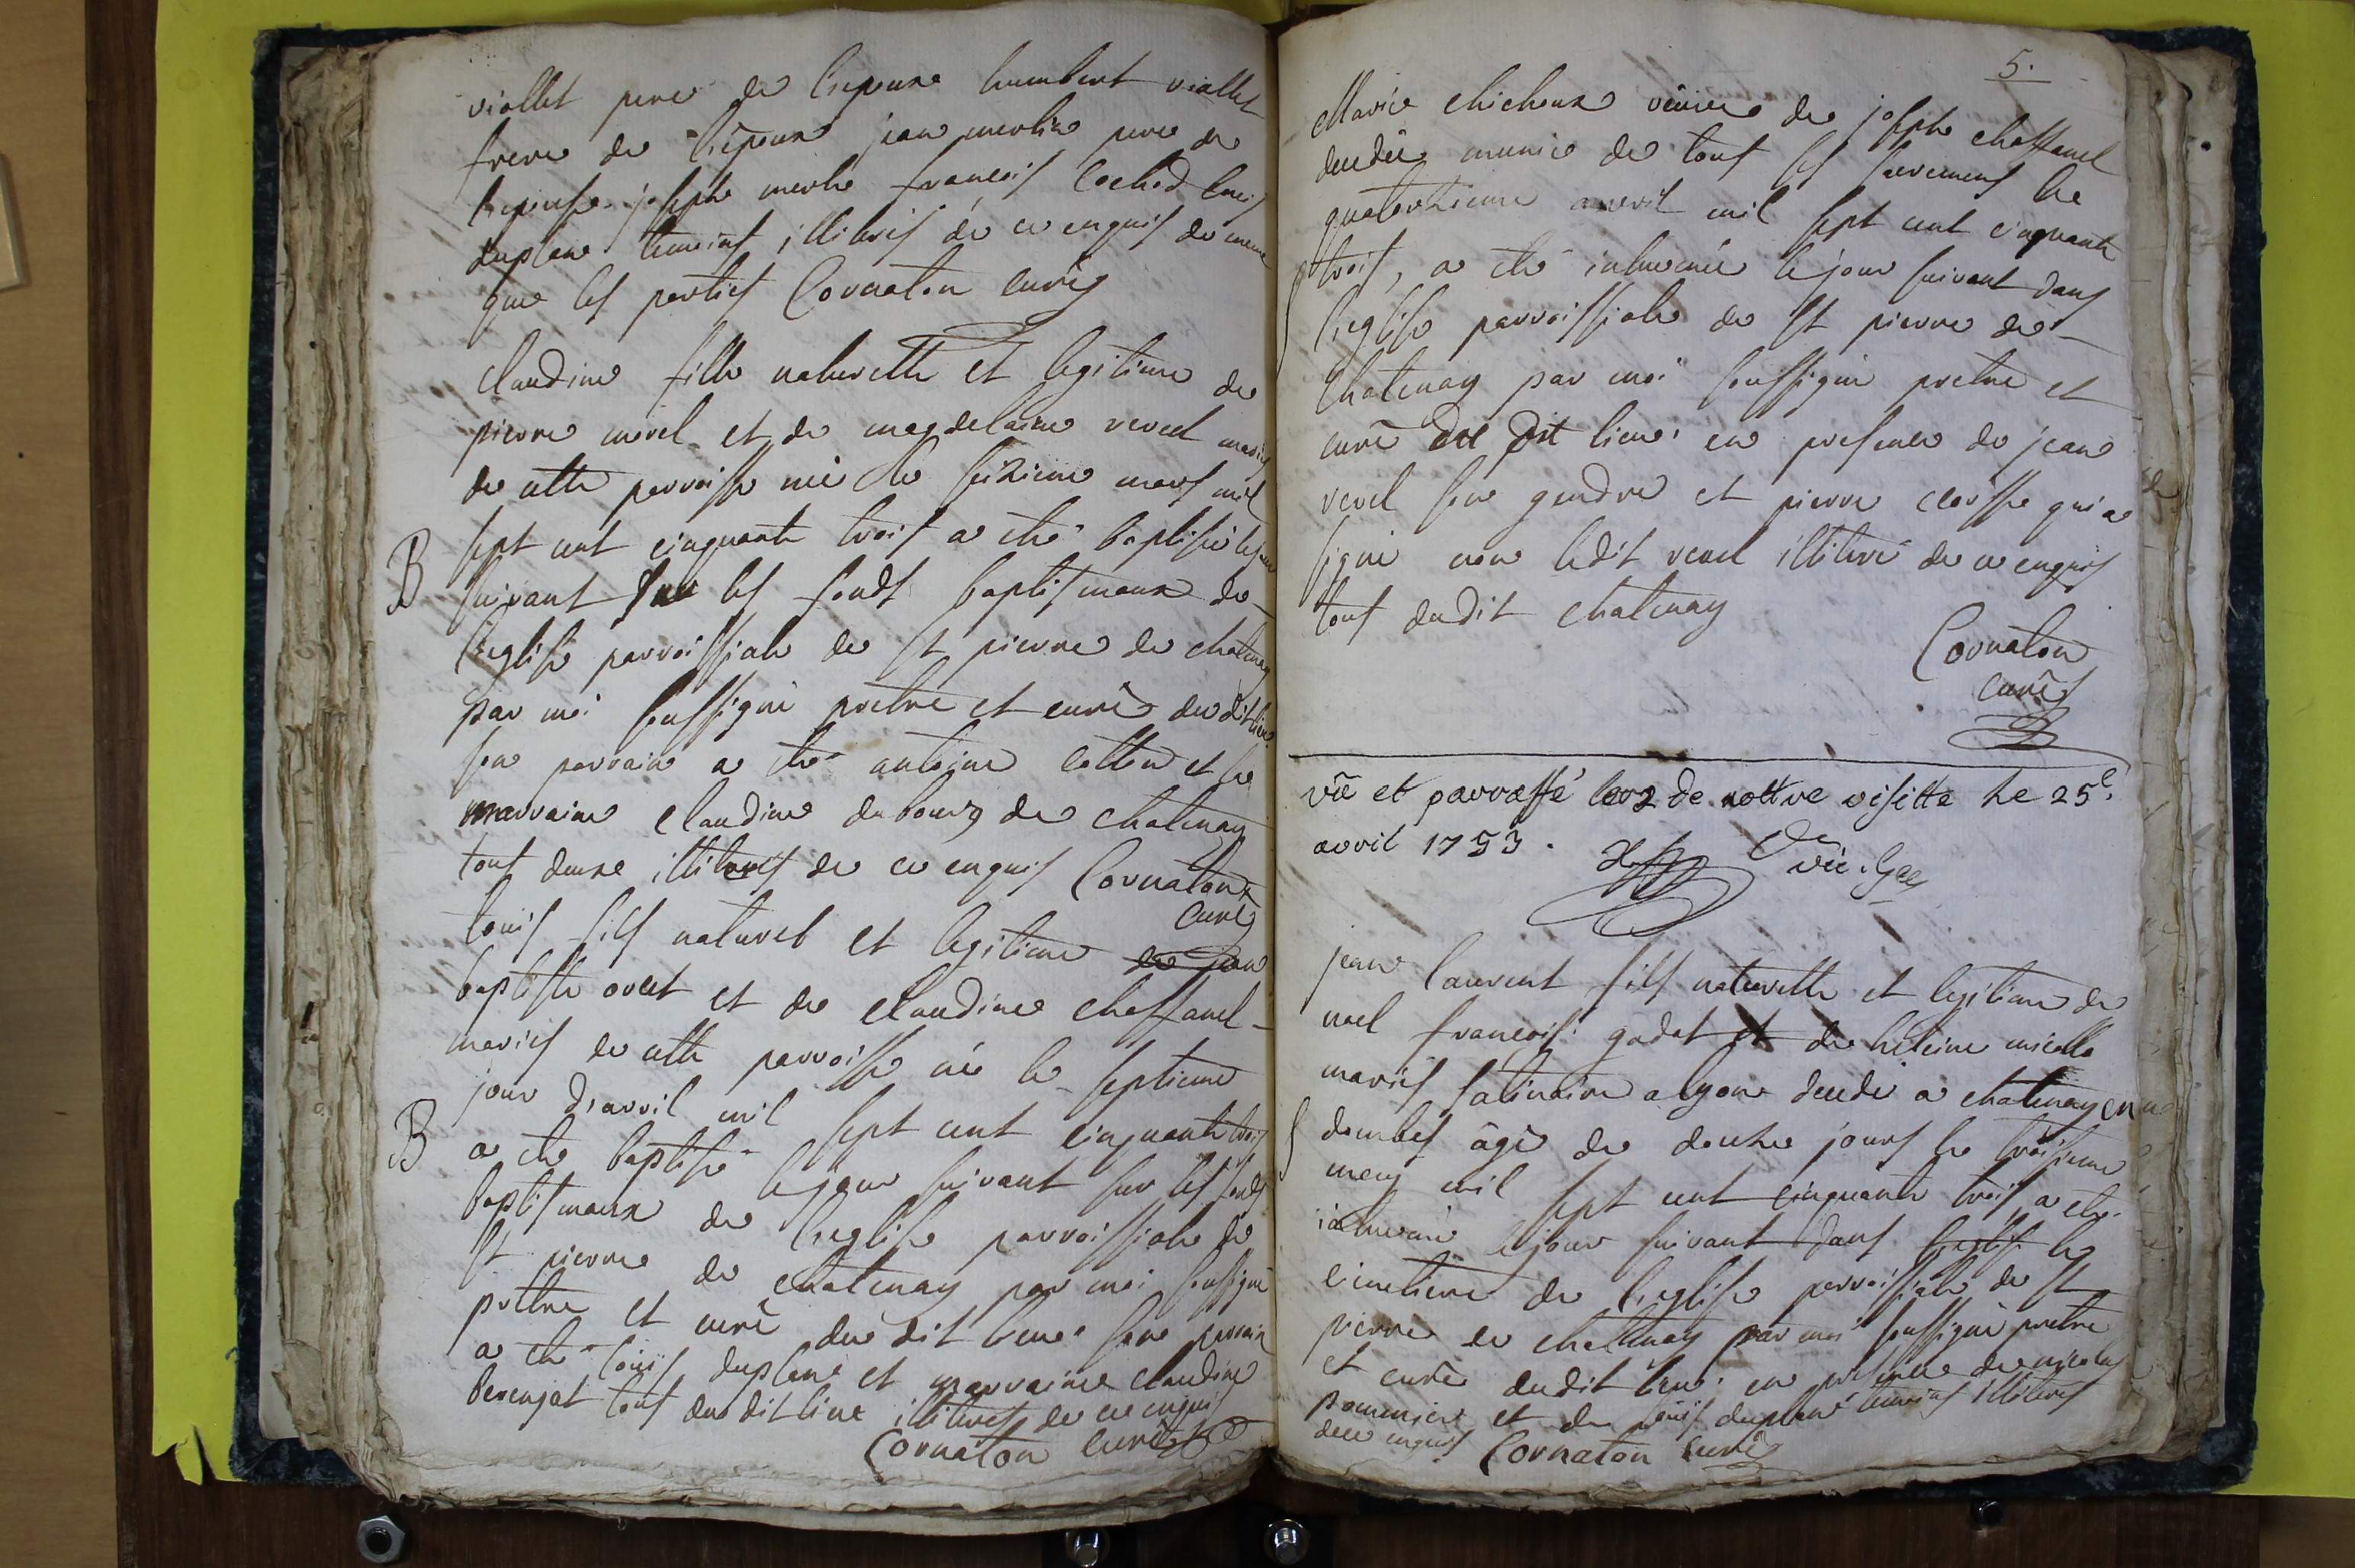 viollet pere de l'epoux humbert viollet
frere de l'epoux jean merlin pere de
l'epouse joseph merle françois cochod louis
duplan temoins illiterés de ce enquis de meme
que les parties Cornaton curé
claudine fille naturelle et legitime de
pierre morel et de magdelaine revel mariés
de cette parroisse née le seizieme mars mil
B sept cent cinquante trois a eté baptisée le jour
suivant sur les fonds baptismaux de
l'eglise parroissiale de St pierre de chatenay
par moi soussigné pretre et curé du dit lieu
son parrain a eté antoine cotton et sa
marraine claudine dubourg de chatenay
tous deux illiterés de ce enquis Cornaton
curé
louis fils naturel et legitime de jean
baptiste ovet et de claudine chaffanel
mariés de cette parroisse né le septieme
jour d'avril mil sept cent cinquante trois
B a eté baptisé le jour suivant sur les fonds
baptismaux de l'eglise parroissiale de
St pierre de chatenay par moi soussigné
pretre et curé du dit lieu son parrain
a eté louis duplan et marraine claudine
berenjat tous du dit lieu illiterés de ce enquis
Cornaton curé
5.
Marie chichoux veuve de joseph chaffanel
decedée munie de tous les sacrements le
quatorzieme avril mil sept cent cinquante
S trois, a eté inhumée le jour suivant dans
l'eglise parroissiale de St pierre de
Chatenay par moi soussigné pretre et
curé du dit lieu en presence de jean
revel son gendre et pierre qui a
signé non ledit revel illiteré de ce enquis
tous dudit chatenay
Cornaton
curé
vû et parraffé lors de nottre visitte le 25e.
avril 1753.
vic. gal
jean laurent fils naturelle et legitime de
noel françois godet et de heleine micollo
mariés satinaire a lyon decedé a chatenay en
S dombes agé de douze jours le troisieme
mey mil sept cent cinquante trois a eté
inhumé le jour suivant dans l'eglise le
cimetiere de l'eglise parroissiale de St
pierre de chatenay par moi soussigné pretre
et curé dudit lieu en presence de nicolas
pommier et de louis duplan temoins illiterés
de ce enquis Cornaton curé